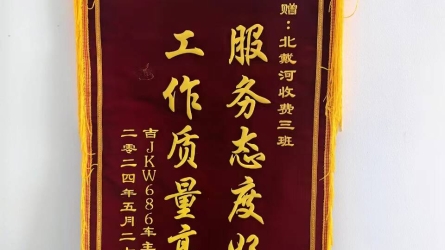 赠：北戴河收费三班
服务态度好
工作质量高
吉JKW686车主
二零二四年五月二